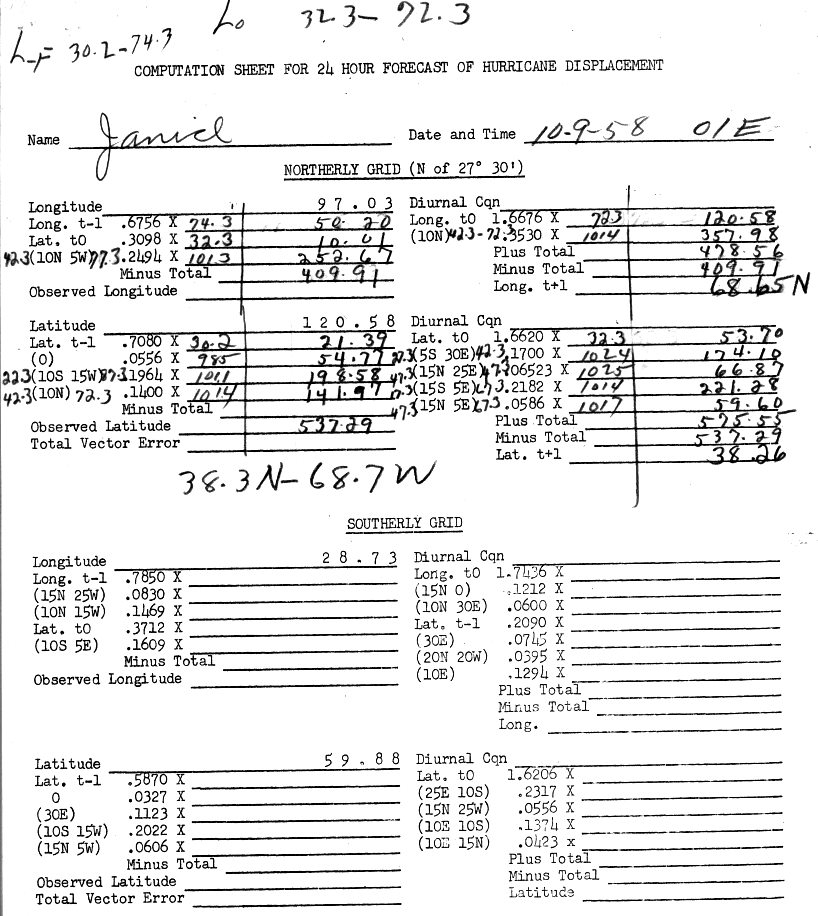 Lo 32.3–72.3
L-F 30.2-74.3
COMPUTATION SHEET FOR 24 HOUR FORECAST OF HURRICANE DISPLACEMENT
Name Janice Date and Time 10-9-58 01E
NORTHERLY GRID (N of 27° 30')
Longitude 97.03
Long. t-1 .6756 X 74.3 50.20
Lat. t0 .3098 X 32.3 10.01
42.3(10N 5W)77.3.2494 X 1013 252.67
Minus Total 409.91
Observed Longitude
Diurnal Cqn
Long. t0 1.6676 X 72.3 120.58
(10N)42.3-72.3.3530 X 1014 357.98
Plus Total 478.56
Minus Total 409.91
Long. t+1 68.65N
Latitude 120.58
Lat. t-1 .7080 X 30.2 21.39
(0) .0556 X 985 54.77
22.3(10S 15W)87.3.1964 X 1011 198.58
42.3(10N)72.3 .1400 X 1014 141.97
Minus Total
Observed Latitude 537.29
Total Vector Error
Diurnal Cqn
Lat. t0 1.6620 X 32.3 53.70
27.3(5S 30E)42.3.1700 X 1024 174.10
47.3(15N 25E)47.3.06523 X 1025 66.87
17.3(15S 5E)67.3.2182 X 1014 221.28
47.3(15N 5E)67.3.0586 X 1017 59.60
Plus Total 575.55
Minus Total 537.29
Lat. t+1 38.26
38.3N-68.7W
SOUTHERLY GRID
Longitude 28.73
Long. t-1 .7850 X
(15N 25W) .0830 X
(10N 15W) .1469 X
Lat. t0 .3712 X
(10S 5E) .1609 X
Minus Total
Observed Longitude
Diurnal Cqn
Long. t0 1.7436 X
(15N 0) .1212 X
(10N 30E) .0600 X
Lat. t-1 .2090 X
(30E) .0745 X
(20N 20W) .0395 X
(10E) .1294 X
Plus Total
Minus Total
Long.
Latitude 59.88
Lat. t-1 .5870 X
0 .0327 X
(30E) .1123 X
(10S 15W) .2022 X
(15N 5W) .0606 X
Minus Total
Observed Latitude
Total Vector Error
Diurnal Cqn
Lat. t0 1.6206 X
(25E 10S) .2317 X
(15N 25W) .0556 X
(10E 10S) .1374 x
(10E 15N) .0423 x
Plus Total
Minus Total
Latitude